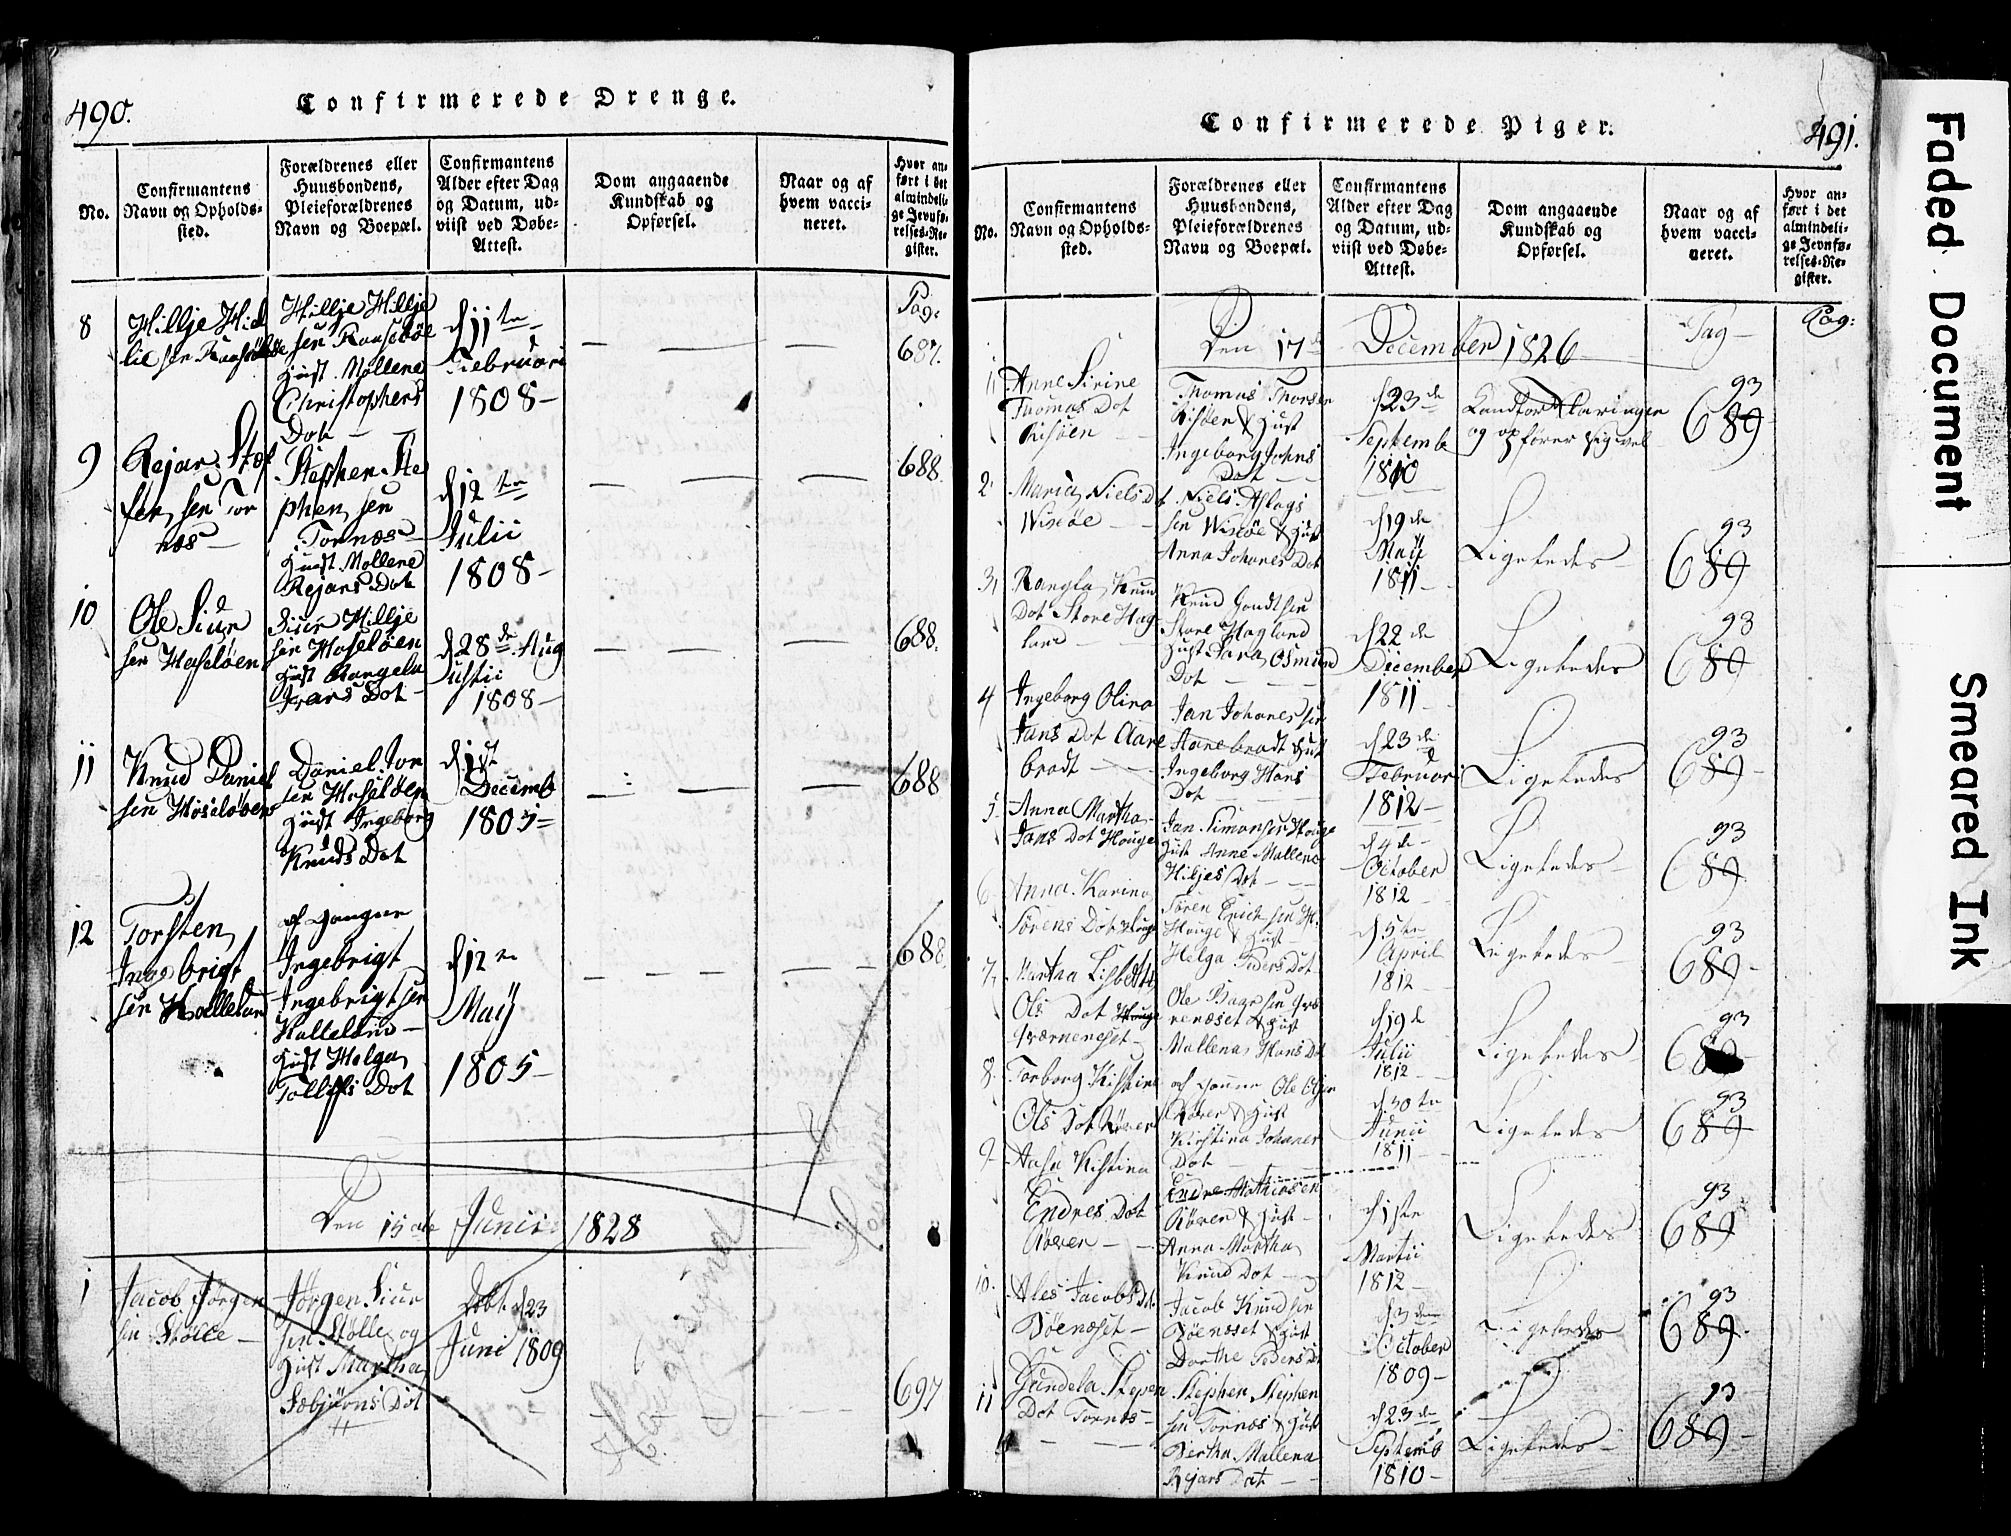 490.
Confirmerede Drenge.
No.
Confirmantens
Navn og Opholds-
sted.
Forældrenes eller
Huusbondens,
Pleieforældrenes
Navn og Boepæl.
Confirmantens
Alder efter Dag
og Datum, ud-
viist ved Døbe-
Attest.
Dom angaaende
Kundskab og
Opførsel.
Naar og af
hvem vacci-
neret.
Hvor an-
ført i det
almindeli-
ge Jevnfø-
relses-Re-
gister.
Pag:
8
Hillje Hil
lie sen
Hillje Hillje
sen
Hust. Mollene
Christophers
Dot
d 11te
Februari
1808
687.
9
Rejar Stef
fen sen Tor
næs
Stephen Ste
phen sen
Tornæs
Hust Mollene
Rejars Dot
d 12te
Julii
1808
688.
10
Ole Siur
sen Hoseløen
Siur Hillje
sen Hoseløen
Hust Rangela
Ivars Dot
d 28de Aug
ustii
1808
688.
11
Knud Daniel
sen Hoseløen
Daniel Jon
sen Hoseløen
Hust Ingeborg
Knuds Dot
d 1st
Decemb
1805
688
12
Torsten
Ingebrigt
sen
Ingebrigt
Ingebrigtsen
Hust Helga
Tollefs Dot
d 12te
Maij
1805
688
Den 15de Junii 1828
1
Jacob Jørgen
sen Stølle
Jørgen Siur
sen Stølle og
Hust Martha
Dot
Døbt d 23
Juni 1809
697
Haugesund
491.
Confirmerede Piger.
No.
Confirmantens
Navn og Opholds-
sted.
Forældrenes eller
Huusbondens,
Pleieforældrenes
Navn og Boepæl.
Confirmantens
Alder efter Dag
og Datum, ud-
viist ved Døbe-
Attest.
Dom angaaende
Kundskab og
Opførsel.
Naar og af
hvem vacci-
neret.
Hvor an-
ført i det
almindeli-
ge Jevnfø-
relses-Re-
gister.
Den 17de December 1826
Pag
Pag:
1
Anne Sirine
Thomas Dot
Risøen
Thomas Thorsen
Risøen & Hust
Ingeborg Johns
Dot
d 23de
Septemb
1810
og opfører sig vel
93
689
2
Maria Niels Dot
Visnøe
Niels Aslags
sen Visnøe & Hust
Anna Johanes Dot
d 19de
Maij
1811
Ligeledes
93
689
3
Rangla Knud
Dot Store Hag
land
Knud
Store Hagland
Hust Osmund
Dot
d 22de
December
1811
Ligeledes
93
689
4
Ingeborg Olina
Jans Dot Aare
brodt
Jan Johanessen
Aarebrodt Hust
Ingeborg Hans
Dot
d 23de
Februari
1812
Ligeledes
93
689
5
Anna Martha
Jans Dot Houge
Jan Simonsen Houge
Hust Anne Mallene
Hiljes Dot
d 4de
October
1812
Ligeledes
93
689
6
Anna Karina
Sørens Dot Houge
Søren Erich sen
Houge & Hust
Helga Peders Dot
d 5te
April
1812
Ligeledes
93
689
7
Martha Lisbeth
Ols Dot Houge
Ole
& Hust
Mallena Hans Dot
d 19de
Julii
1812
Ligeledes
93
689
8
Torborg Kistine
Ols Dot Røver
Ole Olsen
Røver & Hust
Kirstina Johanes
Dot
d 30te
Junii
1811
Ligeledes
93
689
9
Aasa Kistina
Endres Dot
Røver
Endre Mathiasen
Røver & Hust
Anna Martha
Knud Dot
d 1ste
Martii
1812
Ligeledes
93
689
10
Ales Jacobs Dot
Bøenæset
Jacob Knudsen
Bøenæset & Hust
Dorthe Peders Dot
d 3de
October
1809
Ligeledes
93
689
11
Gundela Stepen
Dot Tornæs
Stephen Stephen
sen Tornæs & Hust
Bertha Mallena
Rejars Dot
d 23de
Septemb
1810
Ligeledes
93
689
Faded Document
Smeared Ink